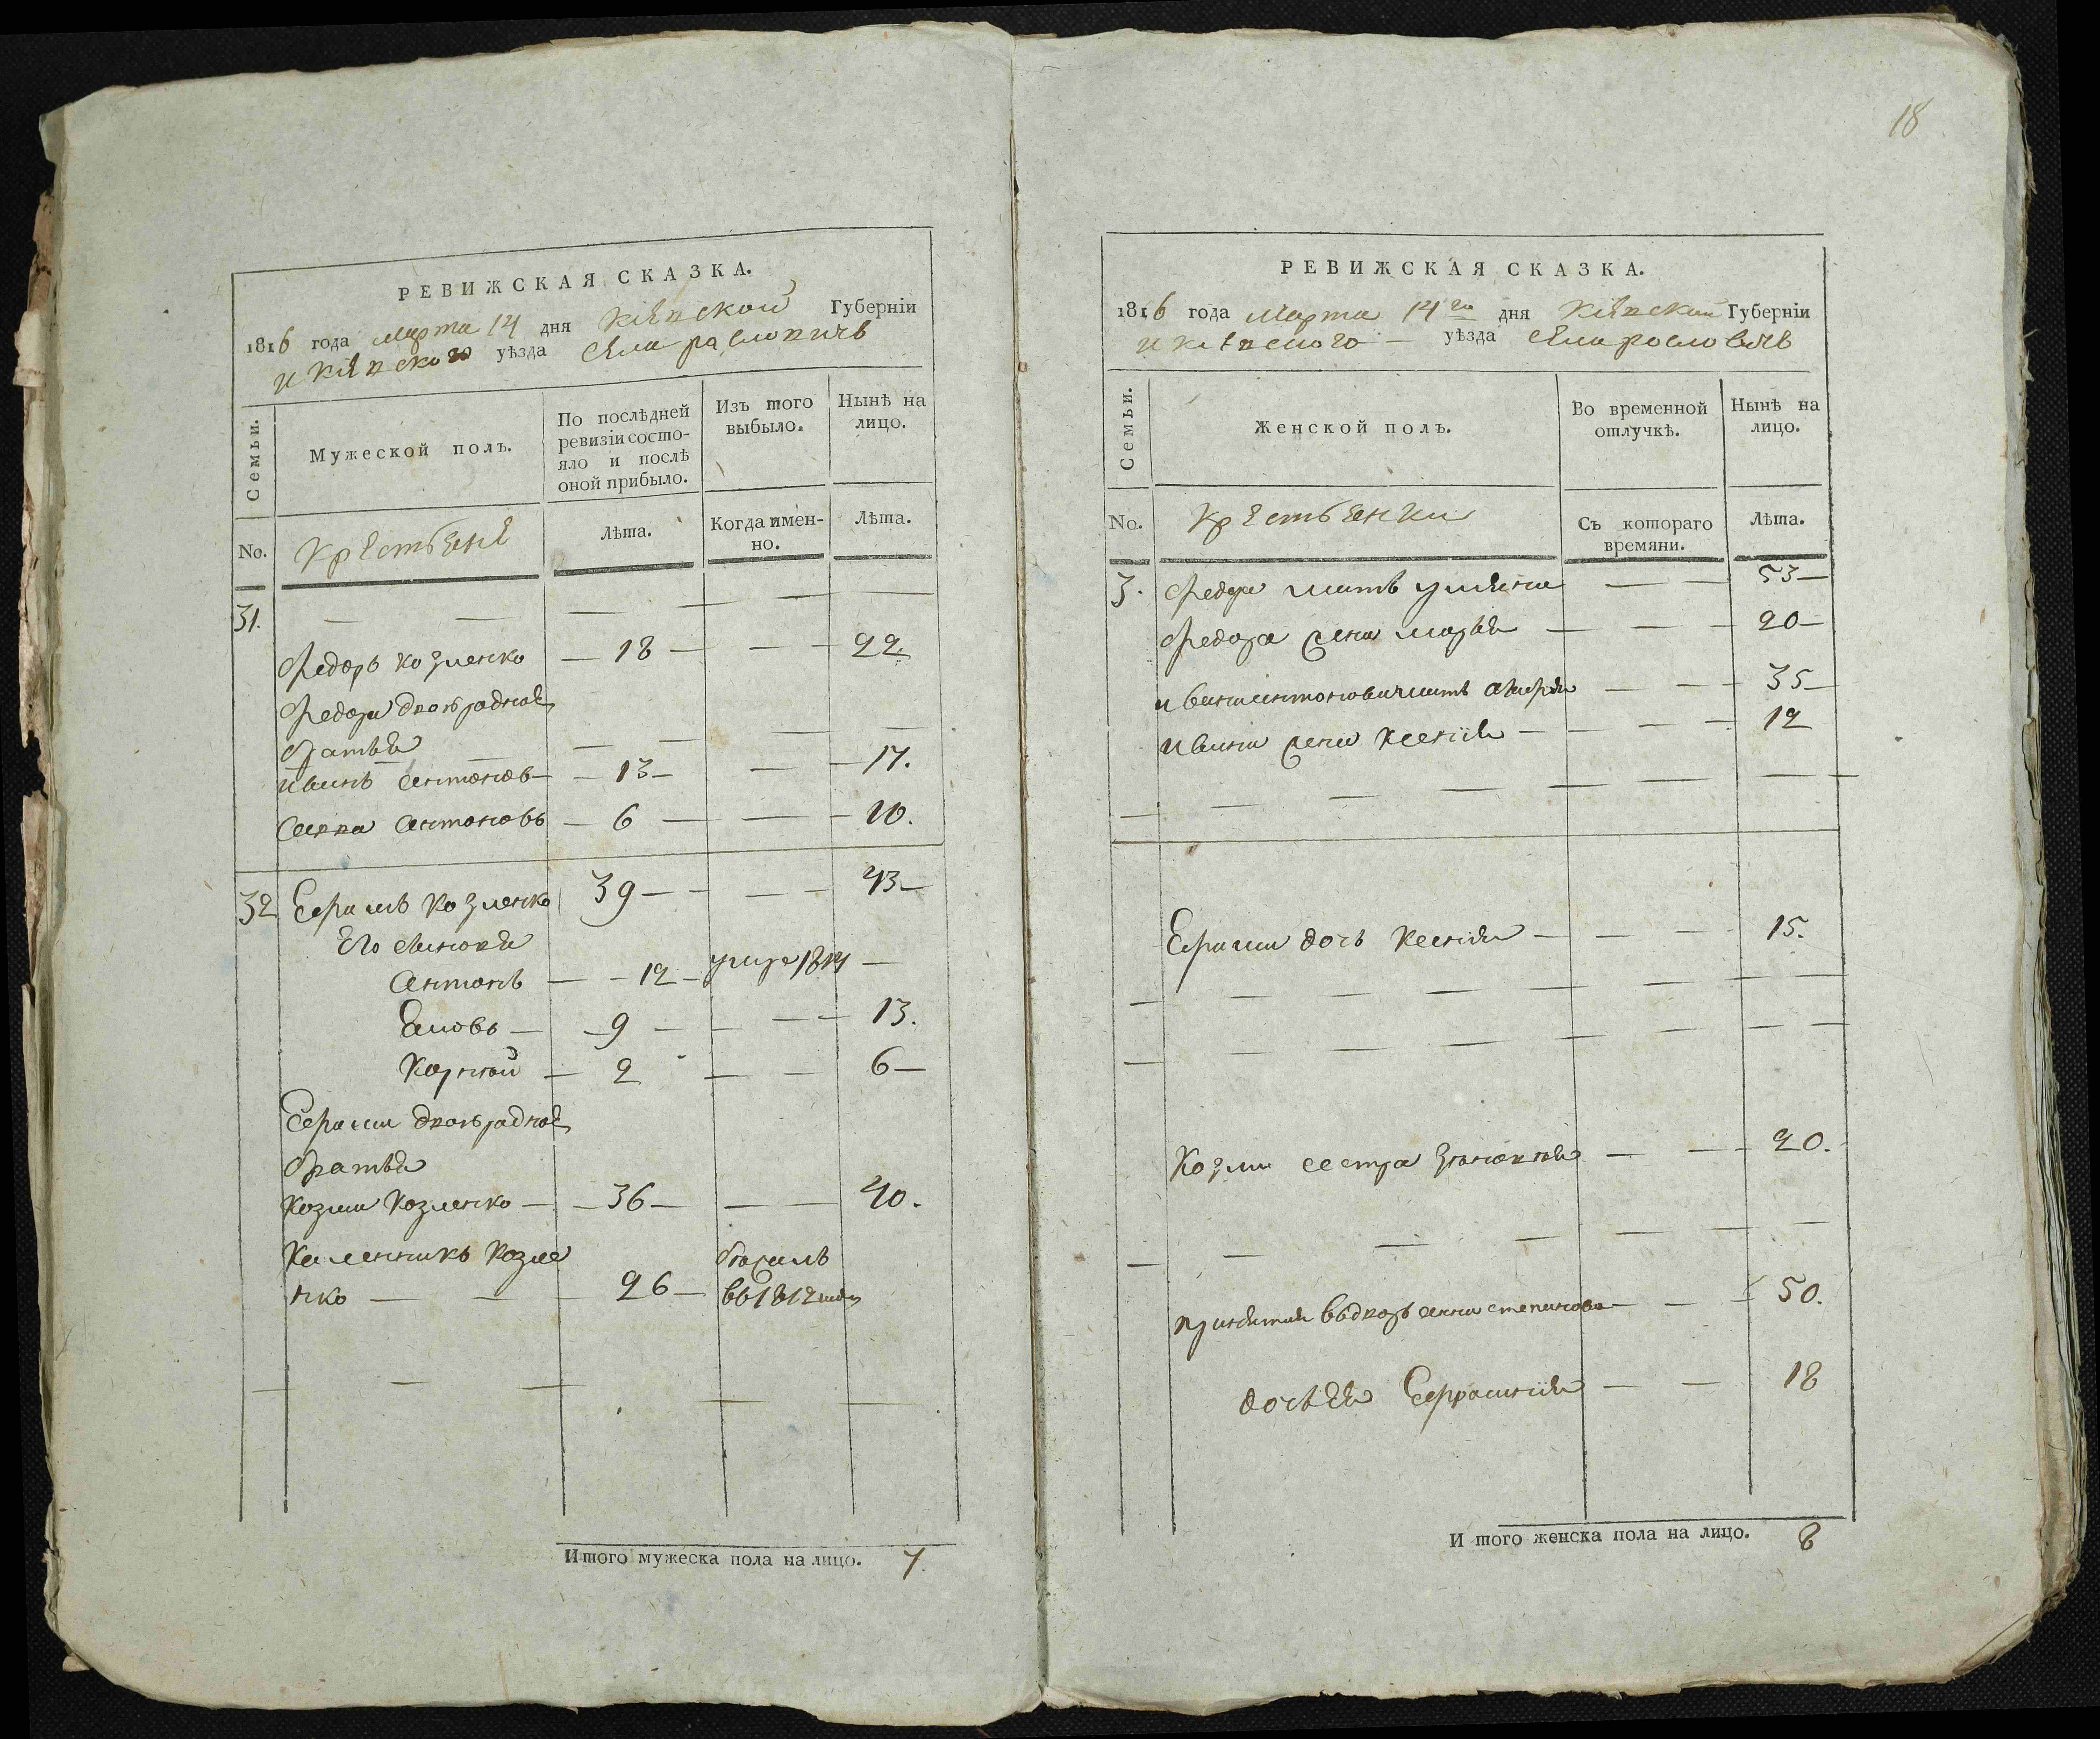 РЕВИЖСКАЯ СКАЗКА.
1816 года марта 14 дня Кіевской Губерніи
и Кіевского уѣзда села
Семьи.
Мужеской полъ.
По послѣдней
ревизіи состо-
яло и послѣ
оной прибыло.
Изъ того
выбыло.
Нынѣ на
лицо.
No.
Крестьяне
Лѣта.
Когда имен-
но.
Лѣта.
31.
Федоръ Козленко — 18 — — — 22.
Федора двоюродние
братья
Иванъ Антоновъ — 13 — — 17.
Савва Антоновъ — 6 — — 10.
32 Ефимъ Козленко 39 — — 43 —
Его синовя
Антонъ — 12 — умре 1814 —
Яковъ — 9 — — 13.
Корней — 2 — — 6 —
Ефима двоюродние
братья
Козма Козленко — 36 — — 40.
Каленникъ Козле
нко — 26 — въ 1812
Итого мужеска пола на лицо. 7.
18
РЕВИЖСКАЯ СКАЗКА.
1816 года Марта 14го дня Кіевской Губерніи
и Кіевского — уѣзда села
Семьи.
Женской полъ.
Во временной
отлучкѣ.
Нынѣ на
лицо.
No.
Крестьянки
Съ котораго
времяни.
Лѣта.
3. Федора мать Уляна — — 53 —
Федора жена Марья — — — 20 —
Ивана Антонова мать — — 35 —
Ивана жена Ксенія — — — 12
Ефима дочь Ксенія — — — 15.
Козми сестра — — 20.
Анна Степанова — — 50.
дочь Ея Ефросинія — — 18
И того женска пола на лицо. 8